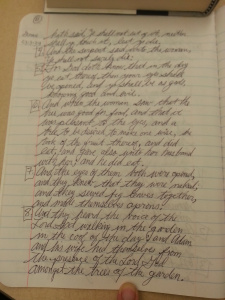 hath said, Ye shall not eat of it, neither
shall ye touch it, lest ye die.
And the serpent said unto the woman,
Ye shall not surely die:
For God doth know, that in the day
ye eat thereof, then your eyes shall be
opened, and ye shall be as gods,
knowing good and evil.
And when the woman saw that the
tree was good for food, and that it
was pleasant to the eyes, and a
tree to be desired to make one wise, she
took of the fruit thereof, and did
eat, and gave also unto her husband
with her; and he did eat.
And the eyes of them both were opened,
and they knew that they were naked,
and they sewed fig leaves together,
and made themselves aprons.
And they heard the voice of the
Lord God walking in the garden
in the cool of the day: and Adam
and his wife hid themselves from
the presence of the Lord God
amongst the trees of the garden.